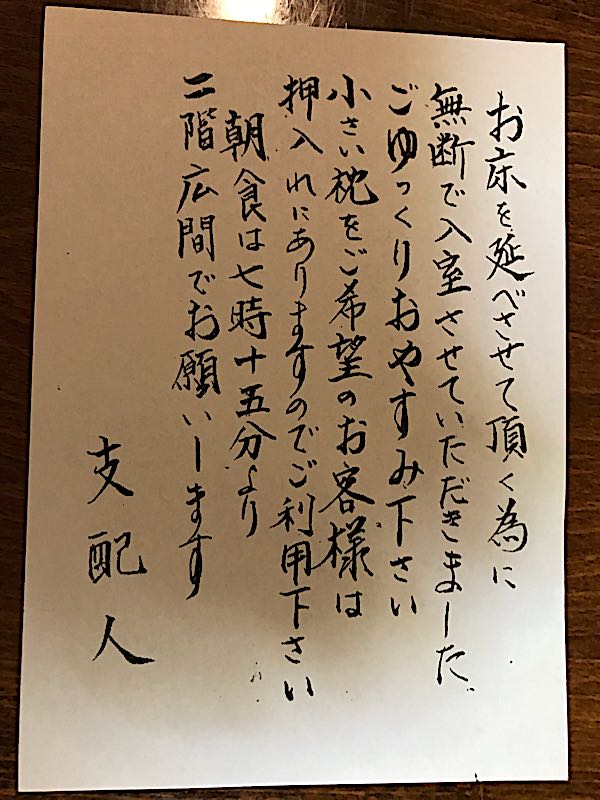 お床を延べさせて頂く為に
無断で入室させていただきました。
ごゆっくりおやすみ下さい
小さい枕をご希望のお客様は
押入れにありますのでご利用下さい
朝食は七時十五分より
二階広間でお願いします
支配人